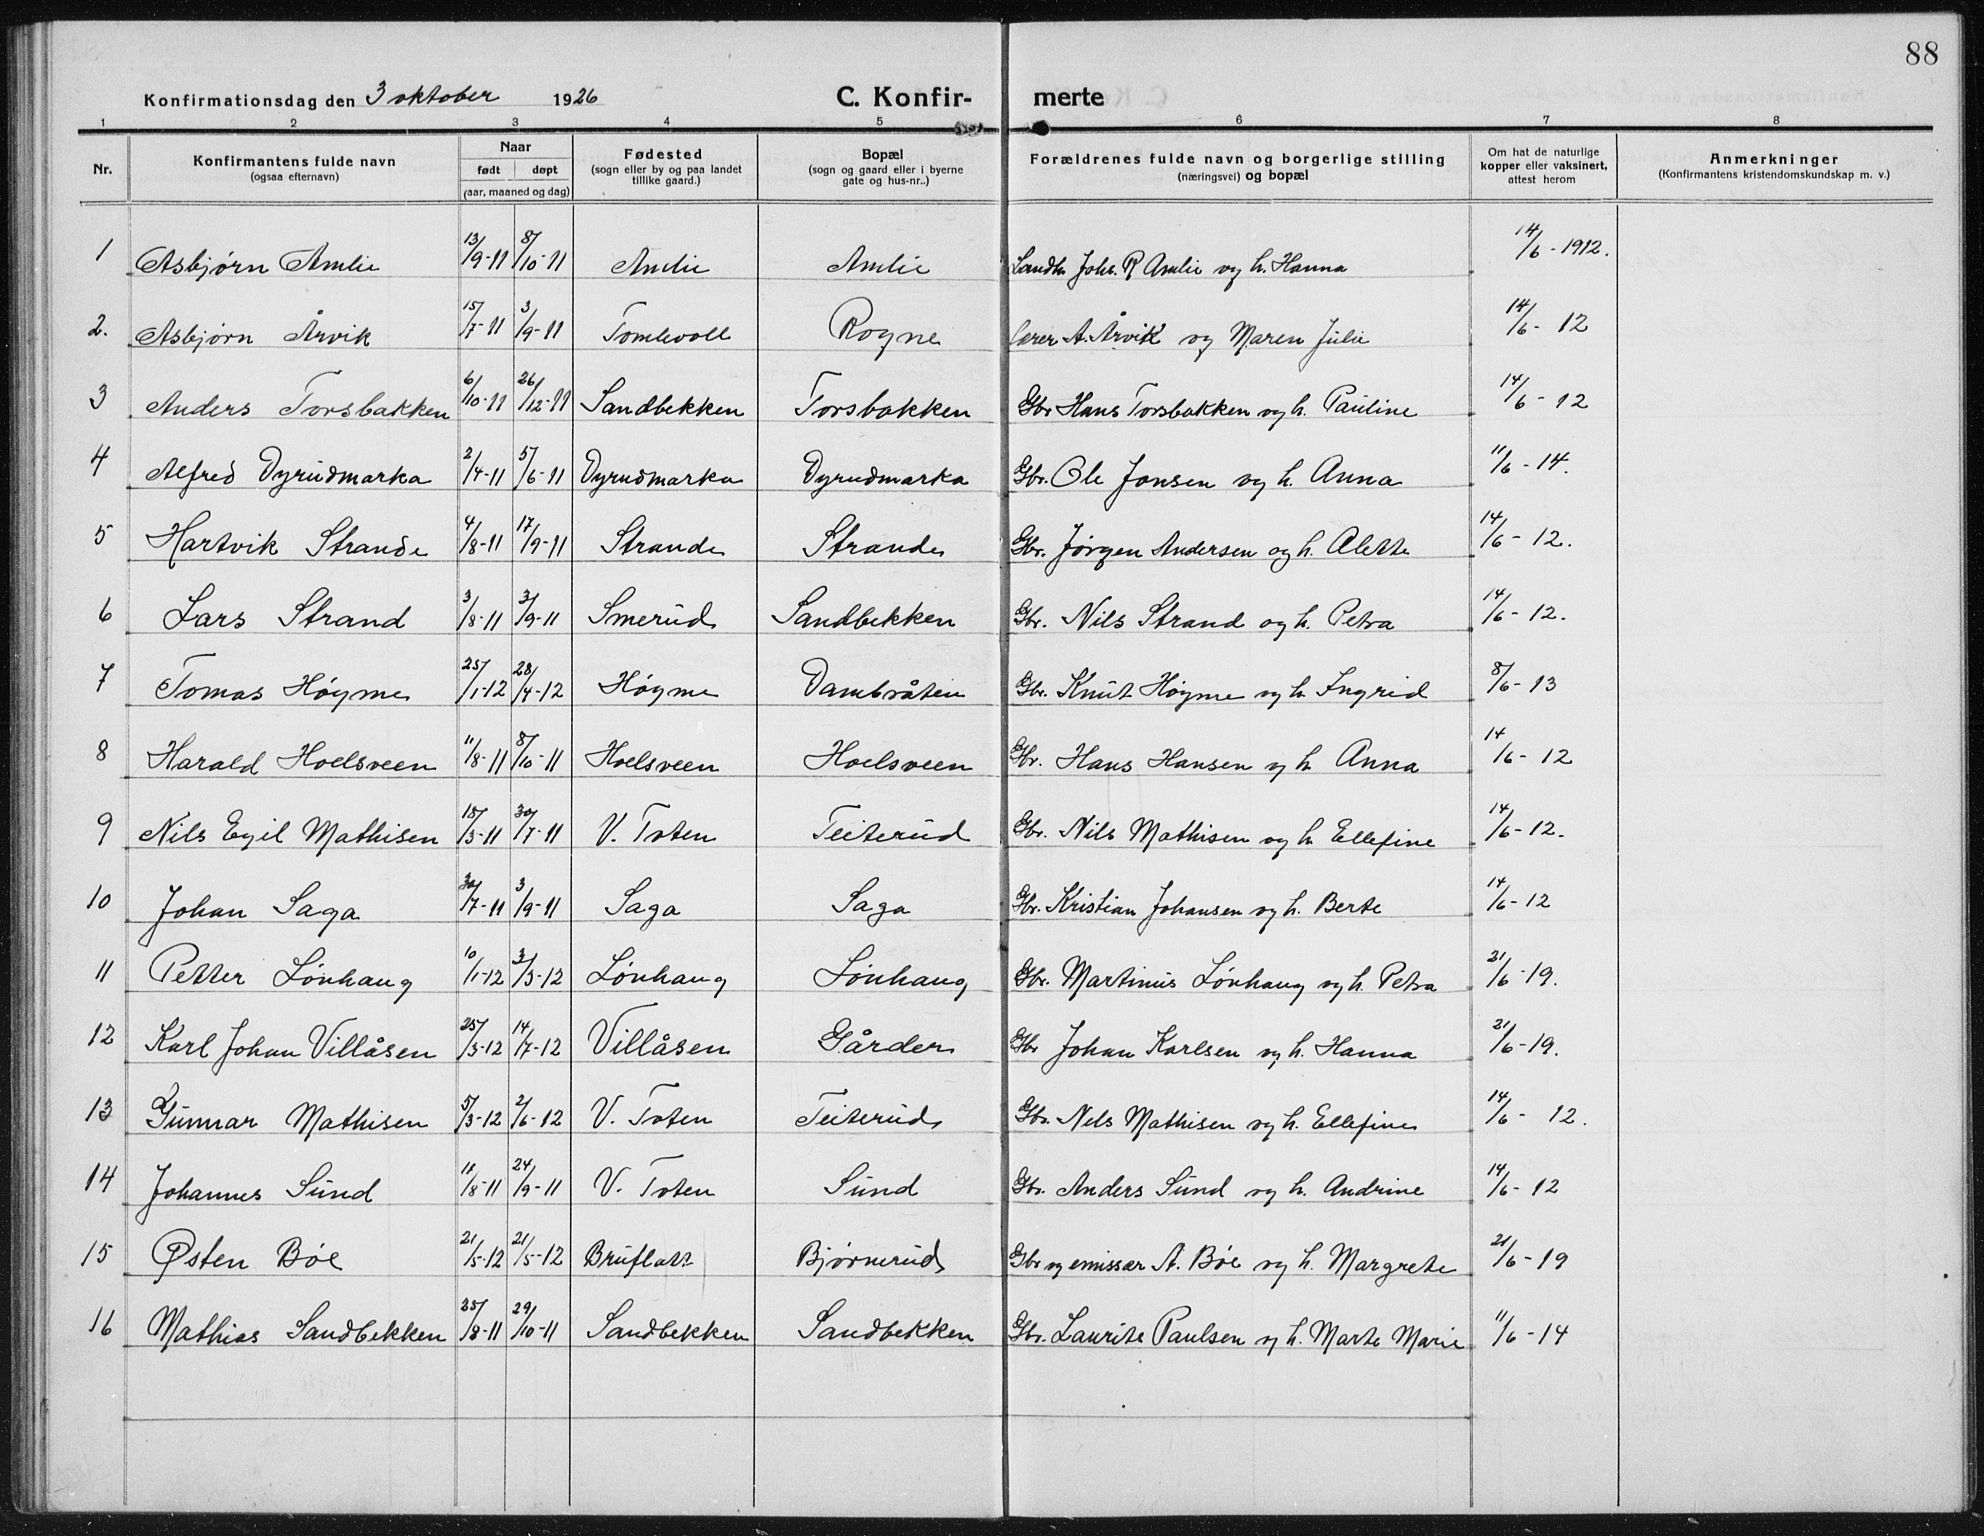 88
Konfirmationsdag den 3 oktober 1926 C. Konfir- merte
1 2 3 4 5 6 7 8
Nr. Konfirmantens fulde navn (ogsaa efternavn) Naar født døpt (aar, maaned og dag) Fødested (sogn eller by og paa landet tillike gaard.) Bopæl (sogn og gaard eller i byerne gate og hus-nr..) Forældrenes fulde navn og borgerlige stilling (næringsvei) og bopæl Om hat de naturlige kopper eller vaksinert, attest herom Anmerkninger (Konfirmantens kristendomskundskap m. v.)
1 Asbjørn Amlie 13/9-11 8/10-11 Amlie Amlie Landh. Johs. R Amlie og h. Hanna 14/6-1912.
2. Asbjørn Årvik 15/7-11 3/9-11 Tomlevoll Rogne lærer A. Årvik og Maren Julie 14/6-12
3 Anders Torsbakken 6/10-11 26/12-11 Sandbekken Torsbakken Gbr Hans Torsbakken og h. Pauline 14/6-12
4 Alfred Dyrudmarka 2/4-11 5/6-11 Dyrudmarka Dyrudmarka Gbr. Ole Jonsen og h. Anna 11/6-14.
5 Hartvik Strande 4/8-11 17/9-11 Strande Strande Gbr. Jørgen Andersen og h. Alette 14/6-12.
6 Lars Strand 3/8-11 3/9-11 Smerud Sandbekken Gbr. Nils Strand og h. Petra 14/6-12.
7 Tomas Høgme 25/1-12 28/4-12 Høgme Dambråten Gbr. Knut Høgme og h. Ingrid 8/6-13
8 Harald Hoelsveen 11/8-11 8/10-11 Hoelsveen Hoelsveen Gbr. Hans Hansen og h. Anna 14/6-12
9 Nils Egil Mathisen 15/3-11 30/7-11 V. Toten Teiterud Gbr. Nils Mathisen og h. Ellefine 14/6-12.
10 Johan Saga 30/7-11 3/9-11 Saga Saga Gbr. Kristian Johansen og h. Berte 14/6-12
11 Petter Lønhaug 10/1-12 3/3-12 Lønhaug Lønhaug Gbr. Martinus Lønhaug og h. Petra 21/6-19.
12 Karl Johan Villåsen 25/3-12 14/7-12 Villåsen Gårder Gbr Johan Karlsen og h. Hanna 21/6-19.
13 Gunnar Mathisen 5/3-12 2/6-12 V. Toten Teiterud Gbr. Nels Mathisen og h. Ellefine 14/6-12.
14 Johannes Sund 11/8-11 24/9-11 V. Toten Sund Gbr. Anders Sund og h. Andrine 14/6-12
15 Østen Bøe 21/5-12 21/5-12 Bruflatt Bjørnerud Gbr og emissær A. Bøe og h. Margrete 21/6-19
16 Mathias Sandbekken 25/8-11 29/10-11 Sandbekken Sandbekken Gbr. Laurits Paulsen og h. Marte Marie 11/6-14